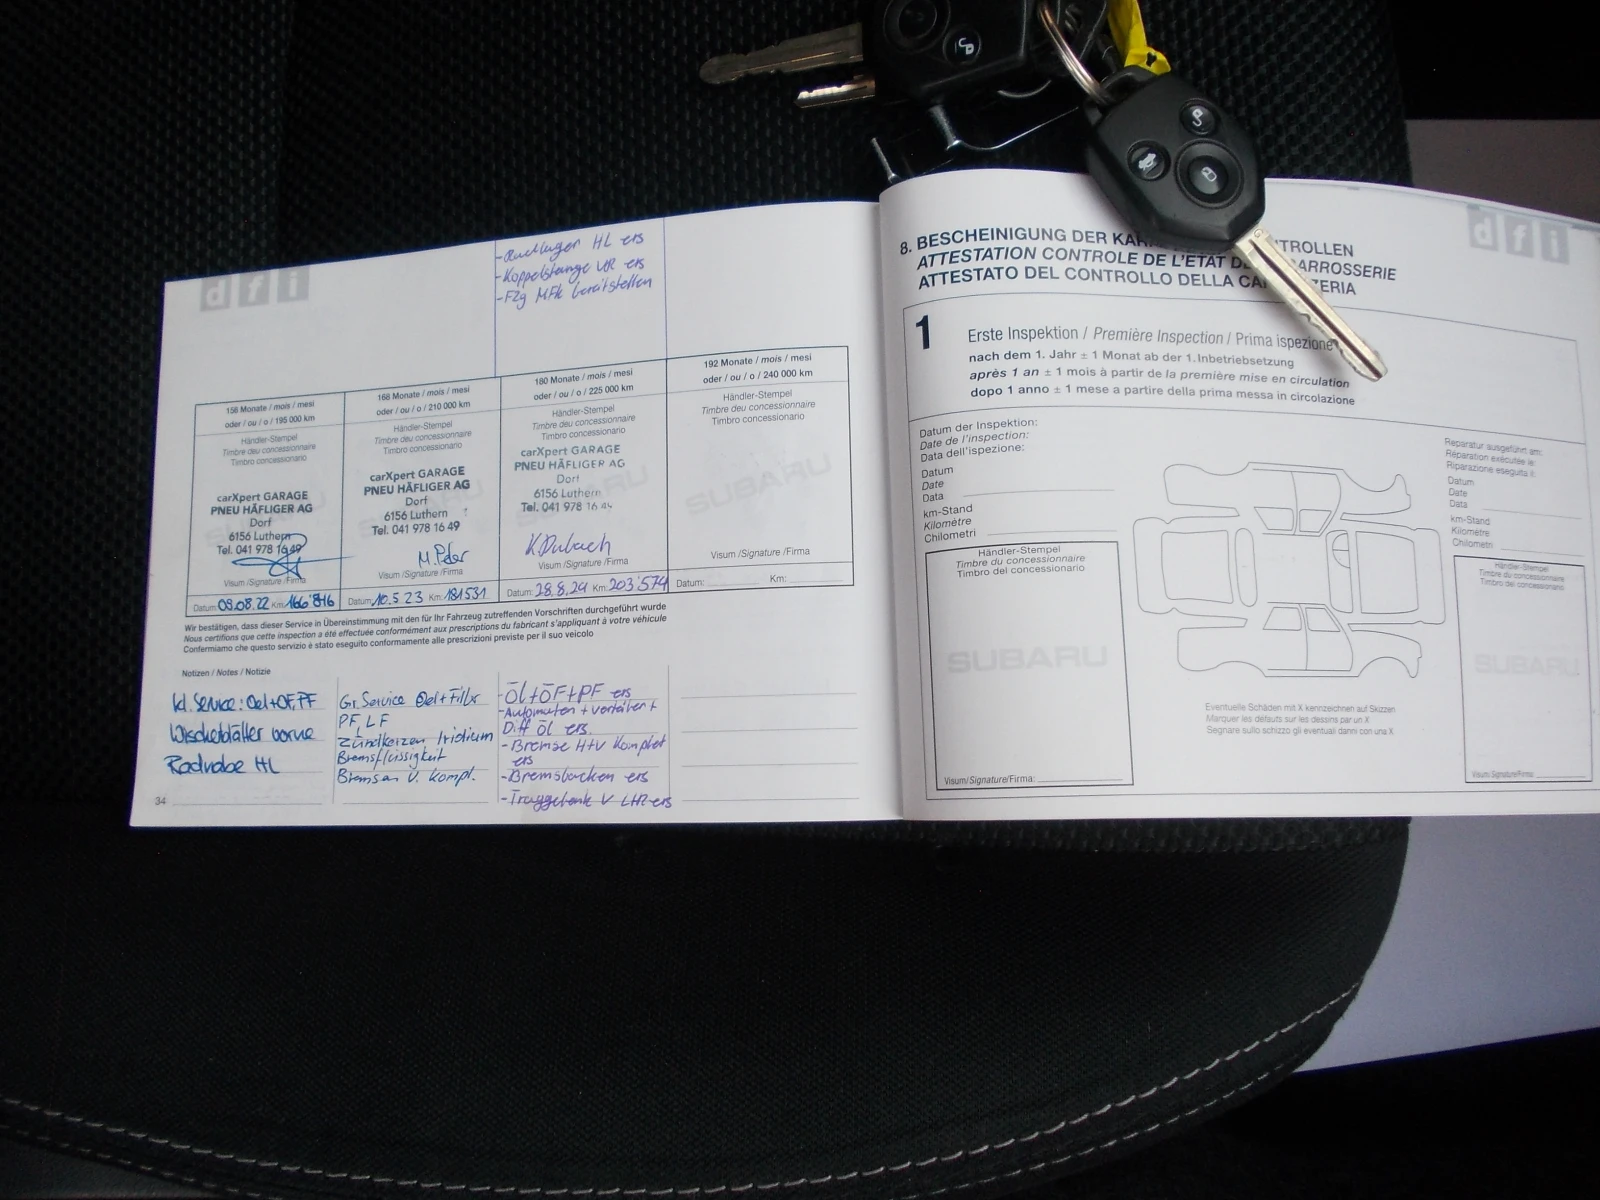 dfi
-Radlager HL ers
-Koppelstange VR ers
-Fzg MFK bereitstellen
156 Monate / mois / mesi
oder / ou / o / 195 000 km
Händler-Stempel
Timbre deu concessionnaire
Timbro concessionario
carXpert GARAGE
PNEU HÄFLIGER AG
Dorf
6156 Luthern
Tel. 041 978 16 49
Visum /Signature /Firma
Datum: 09.08.22 Km: 166'816
168 Monate / mois / mesi
oder / ou / o / 210 000 km
Händler-Stempel
Timbre deu concessionnaire
Timbro concessionario
carXpert GARAGE
PNEU HÄFLIGER AG
Dorf
6156 Luthern
Tel. 041 978 16 49
M. Peter
Visum /Signature /Firma
Datum: 10.5.23 Km: 181531
180 Monate / mois / mesi
oder / ou / o / 225 000 km
Händler-Stempel
Timbre deu concessionnaire
Timbro concessionario
carXpert GARAGE
PNEU HÄFLIGER AG
Dorf
6156 Luthern
Tel. 041 978 16 49
K. Dubach
Visum /Signature /Firma
Datum: 28.8.24 Km: 203'574
192 Monate / mois / mesi
oder / ou / o / 240 000 km
Händler-Stempel
Timbre deu concessionnaire
Timbro concessionario
SUBARU
Visum /Signature /Firma
Datum: Km:
Wir bestätigen, dass dieser Service in Übereinstimmung mit den für Ihr Fahrzeug zutreffenden Vorschriften durchgeführt wurde
Nous certifions que cette inspection a été effectuée conformément aux prescriptions du fabricant s'appliquant à votre véhicule
Confermiamo che questo servizio è stato eseguito conformamente alle prescrizioni previste per il suo veicolo
Notizen / Notes / Notizie
kl. Service: Oel+OF, PF
Wischerblätter vorne
Radnabe HL
Gr. Service Oel+Filter
PF, LF
Zündkerzen Iridium
Bremsflüssigkeit
Bremsen V. kompl.
-Öl+ÖF+PF ers
-Automaten + Verteiler +
Diff öl ers.
-Bremse H+V Komplet
ers
-Bremsbacken ers
-Traggelenk V LHR ers
34
dfi
8. BESCHEINIGUNG DER KAR TROLLEN
ATTESTATION CONTROLE DE L'ÉTAT D CARROSSERIE
ATTESTATO DEL CONTROLLO DELLA CA ZERIA
1
Erste Inspektion / Première Inspection / Prima ispezione
nach dem 1. Jahr ± 1 Monat ab der 1. Inbetriebsetzung
après 1 an ± 1 mois à partir de la première mise en circulation
dopo 1 anno ± 1 mese a partire della prima messa in circolazione
Datum der Inspektion:
Date de l'inspection:
Data dell'ispezione:
Datum
Date
Data
km-Stand
Kilomètre
Chilometri
Händler-Stempel
Timbre du concessionnaire
Timbro del concessionario
SUBARU
Visum/Signature/Firma:
Eventuelle Schäden mit X kennzeichnen auf Skizzen
Marquer les défauts sur les dessins par un X
Segnare sullo schizzo gli eventuali danni con una X
Reparatur ausgeführt am:
Réparation exécutée le:
Riparazione eseguita il:
Datum
Date
Data
km-Stand
Kilomètre
Chilometri
Händler-Stempel
Timbre du concessionnaire
Timbro del concessionario
SUBARU
Visum/Signature/Firma: